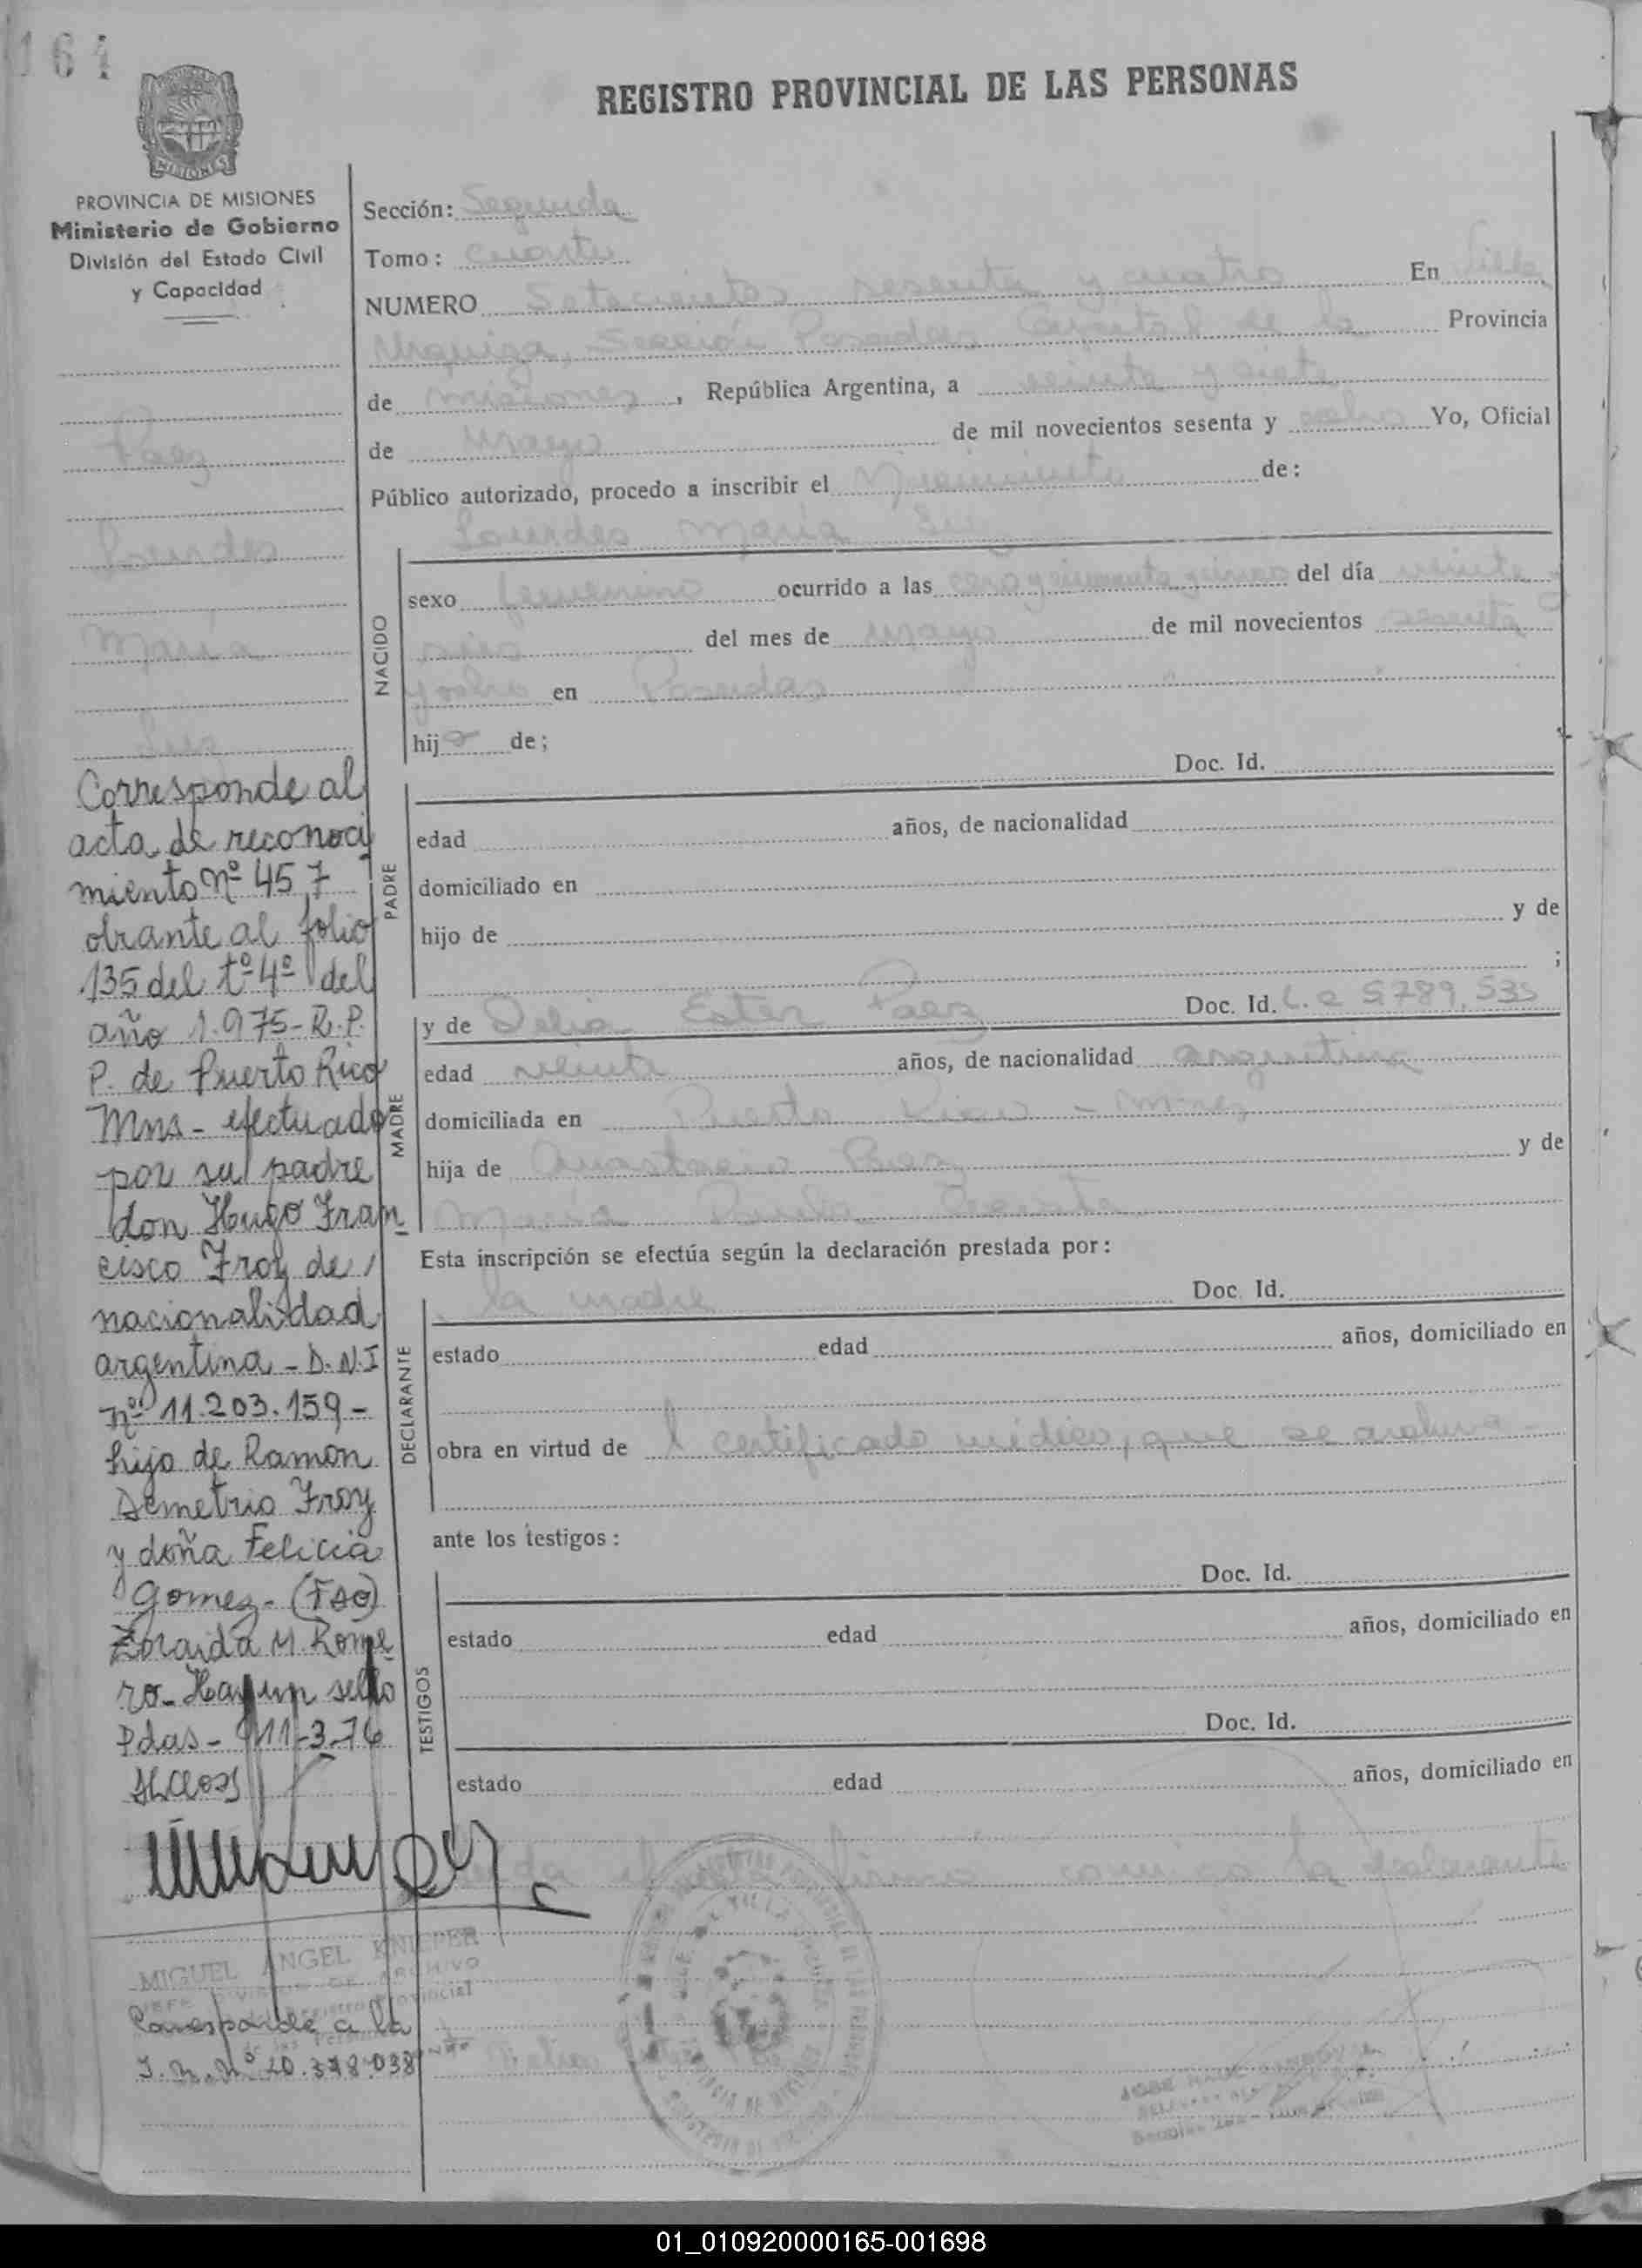 164
MISIONES
PROVINCIA DE MISIONES
Ministerio de Gobierno
División del Estado Civil
y Capacidad
Paez
Lourdes
María
Luz
Corresponde al
acta de reconoci
miento Nº 457
obrante al folio
135 del tº 4º del
año 1.975- R.P.
P. de Puerto Rico
Mns - efectuado
por su padre
don Hugo Fran
cisco Froy de
nacionalidad
argentina - D.N.I
nº 11.203.159 -
hijo de Ramon
Demetrio Froy
y doña Felicia
Gomez - (FDO)
Zoraida M. Rome
ro - Hay un sello
Pdas - 11-3-76
MIGUEL ANGEL KNIEPER
JEFE DIVISION DE ARCHIVO
Registro Provincial
de las Personas
Corresponde a la
I.M. Nº 20.378.038
REGISTRO PROVINCIAL DE LAS PERSONAS
Sección: Segunda
Tomo: Cuarto
NUMERO Setecientos sesenta y cuatro En Villa
Urquiza, Sección Posadas Capital de la Provincia
de Misiones, República Argentina, a veinte y siete
de Mayo de mil novecientos sesenta y ocho Yo, Oficial
Público autorizado, procedo a inscribir el Nacimiento de:
Lourdes María Luz
NACIDO
sexo femenino ocurrido a las cero y cincuenta y cinco del día veinte
del mes de mayo de mil novecientos sesenta
y ocho en Posadas
hija de;
PADRE
Doc. Id.
edad años, de nacionalidad
domiciliado en
hijo de y de
;
MADRE
y de Delia Ester Paez Doc. Id. L.C 5.789.535
edad veinte años, de nacionalidad argentina
domiciliada en Puerto Rico - Mnes
hija de Anastacio Paez y de
María
Esta inscripción se efectúa según la declaración prestada por:
DECLARANTE
la madre Doc. Id.
estado edad años, domiciliado en
obra en virtud de l certificado médico, que se archiva -
ante los testigos:
TESTIGOS
Doc. Id.
estado edad años, domiciliado en
Doc. Id.
estado edad años, domiciliado en
el acta firma conmigo la declarante
01_010920000165-001698